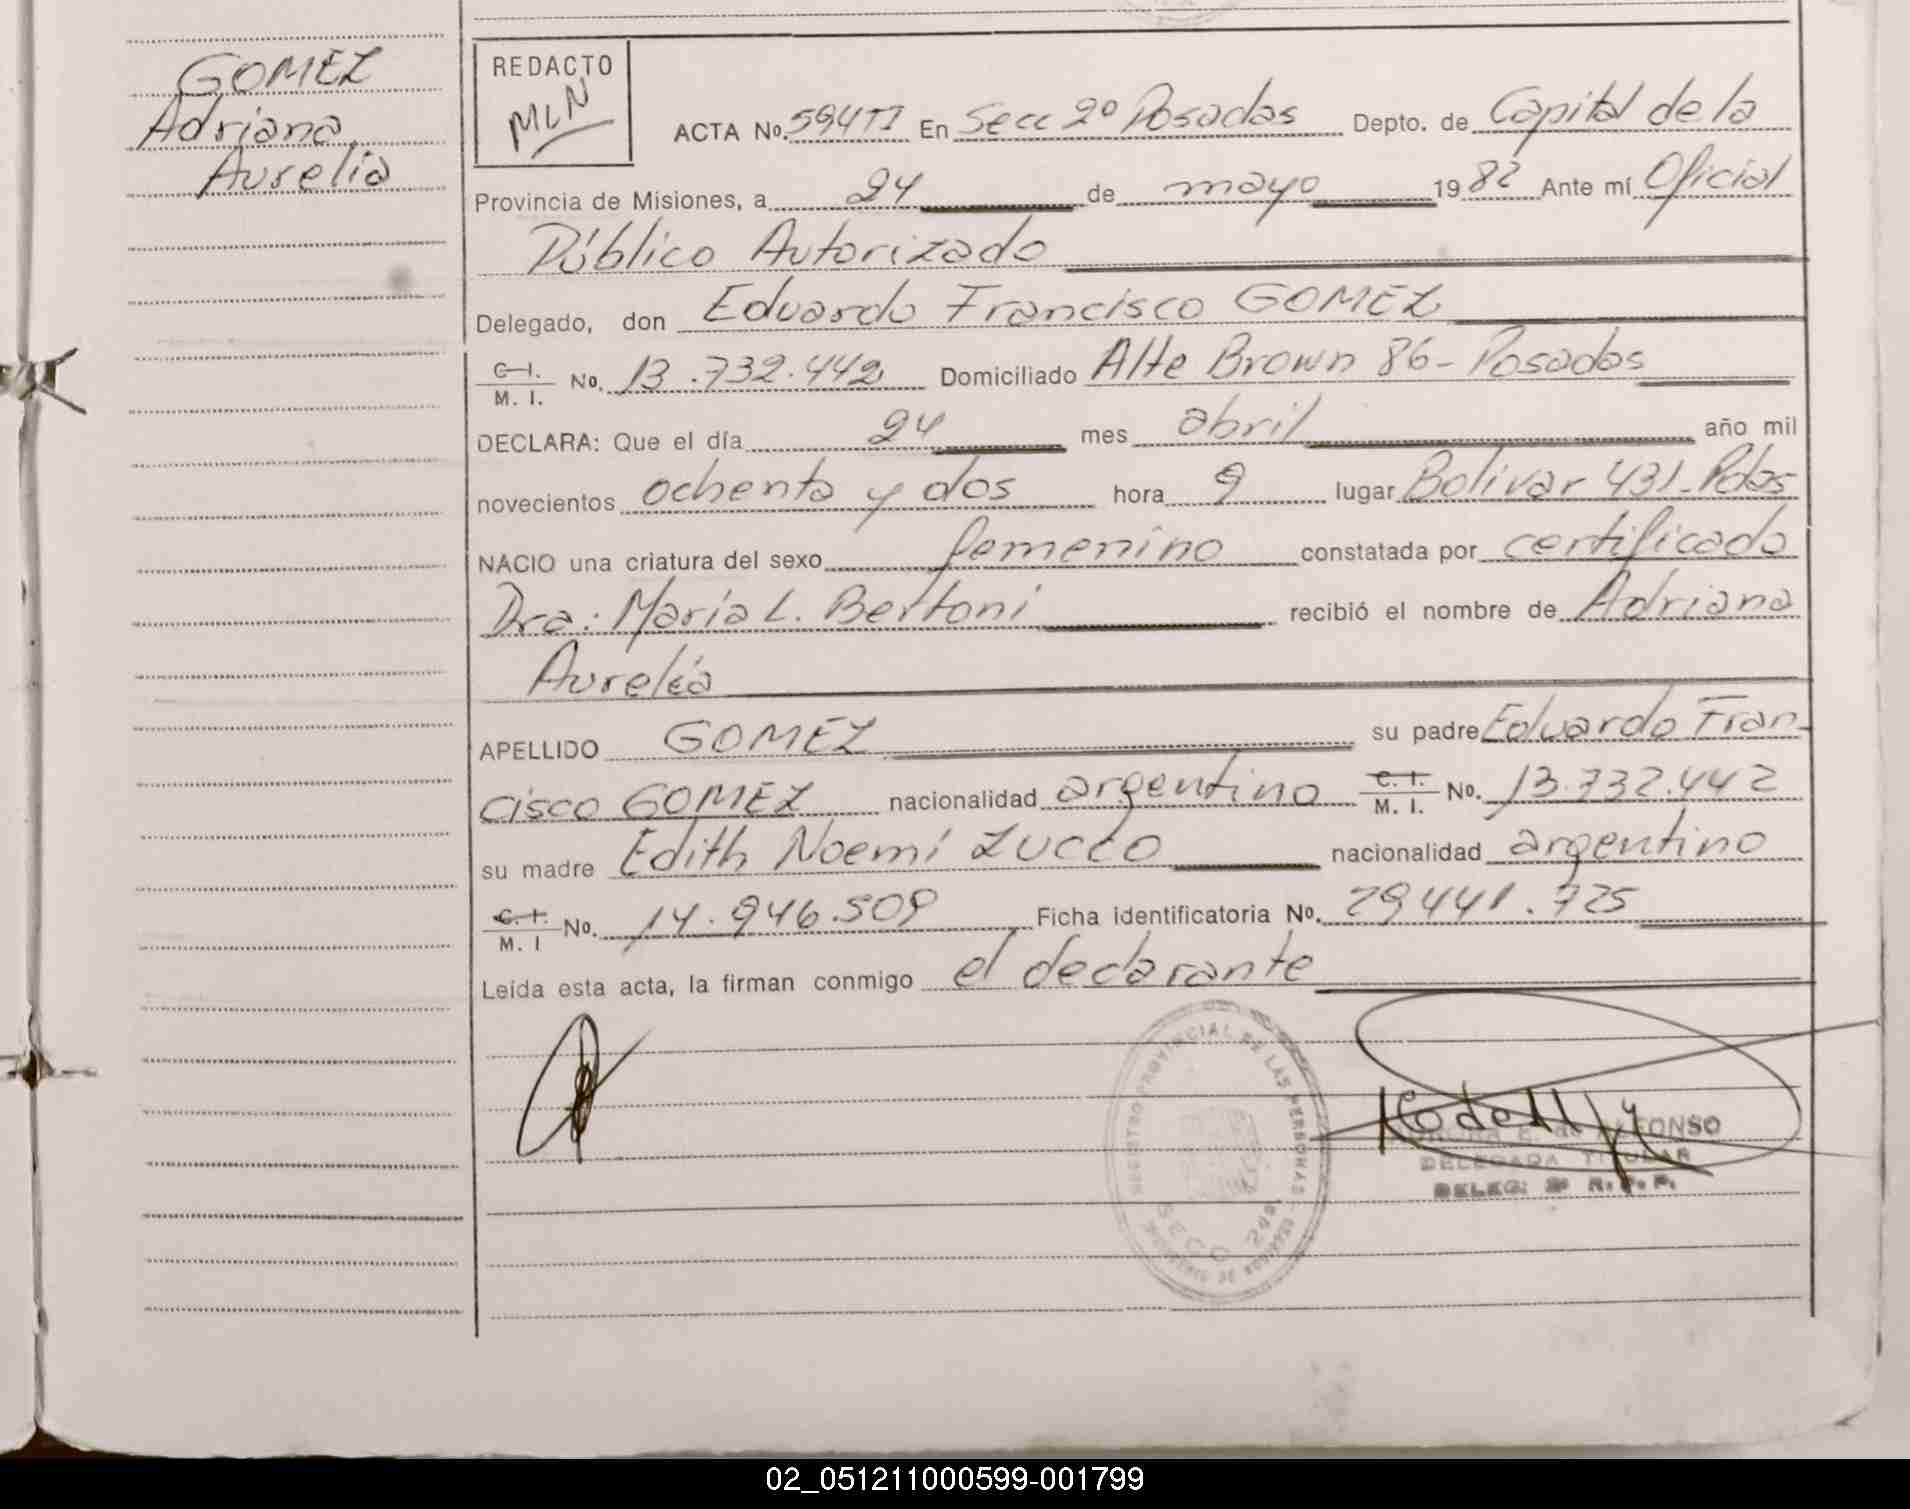 GOMEZ
Adriana
Aurelia
REDACTO
MLN
ACTA No. 594TI En Secc 2º Posadas Depto. de Capital de la
Provincia de Misiones, a 24 de mayo 1982 Ante mí Oficial
Público Autorizado
Delegado, don Eduardo Francisco GOMEZ
C.I. / M. I. No. 13.732.442 Domiciliado Alte Brown 86- Posadas
DECLARA: Que el día 24 mes abril año mil
novecientos ochenta y dos hora 9 lugar Bolívar 431-Pdas
NACIO una criatura del sexo femenino constatada por certificado
Dra: María L. Bertoni recibió el nombre de Adriana
Aurelia
APELLIDO GOMEZ su padre Eduardo Fran-
cisco GOMEZ nacionalidad argentino C. I. / M. I. No. 13.732.442
su madre Edith Noemí Zucco nacionalidad argentino
C. I. / M. I No. 14.946.509 Ficha identificatoria No. 29441.725
Leída esta acta, la firman conmigo el declarante
REGISTRO PROVINCIAL DE LAS PERSONAS
SECC 2da
E. de ALFONSO
DELEGADA TITULAR
DELEG: 2ª R.P.P.
02_051211000599-001799